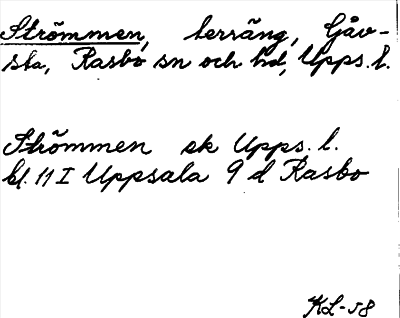 Strömmen, terräng, Gåv-
sta, Rasbo sn och hd, Upps. l.
Strömmen ek Upps. l.
bl. 11 I Uppsala 9 d Rasbo
KL-58